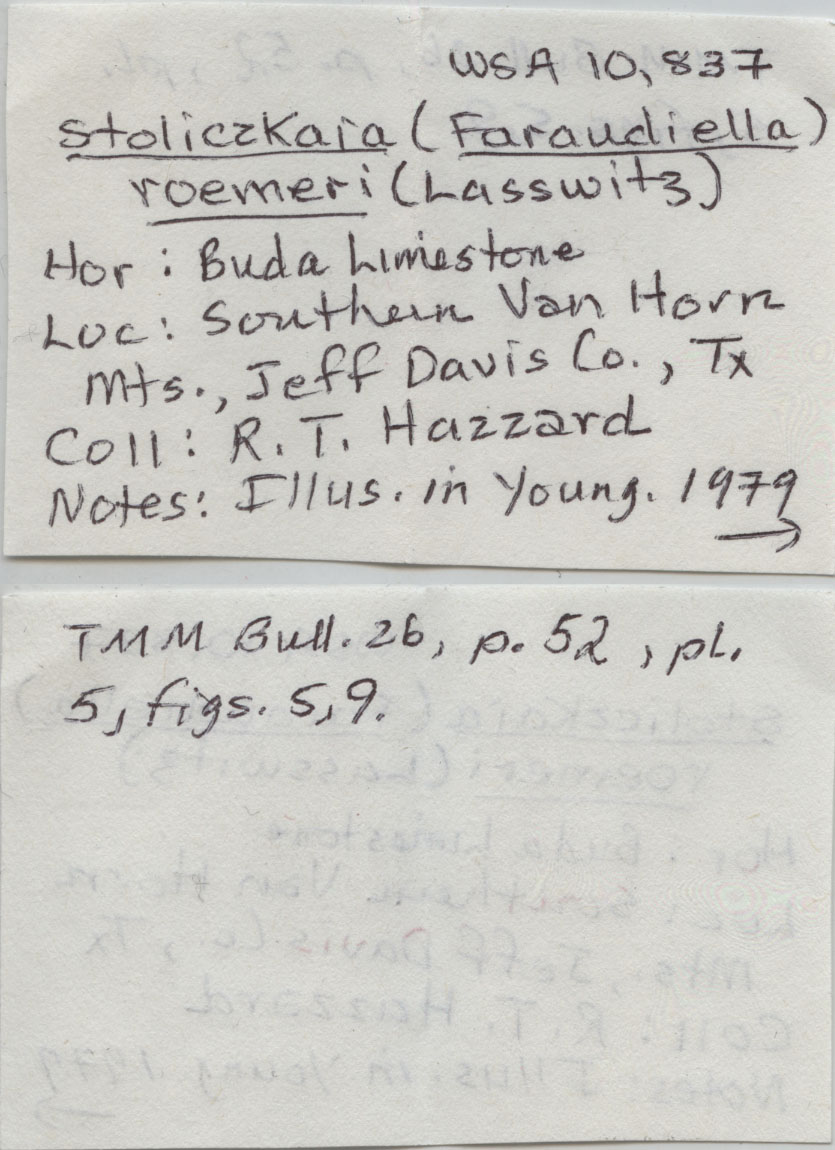 WSA 10,837
Stoliczkaia (Faraudiella)
roemeri (Lasswitz)
Hor: Buda Limestone
Loc: Southern Van Horn
Mts., Jeff Davis Co., Tx
Coll: R. T. Hazzard
Notes: Illus. in Young. 1979
→
TMM Bull. 26, p. 52, pl.
5, figs. 5, 9.